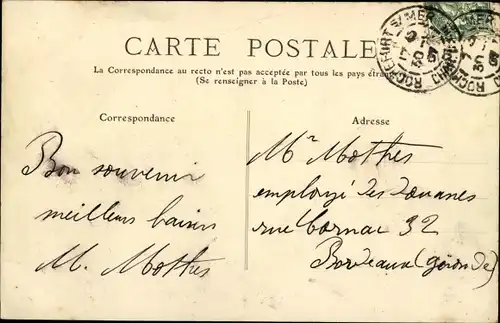 CARTE POSTALE
ROCHEFORT S/MER
La Correspondance au recto n'est pas acceptée par tous les pays
(Se renseigner à la Poste)
Correspondance
Adresse
Bon souvenir
meilleurs baisers
M. Mothes
Mr Mothes
employé des Douanes
rue Cornac 32
Bordeaux (gironde)